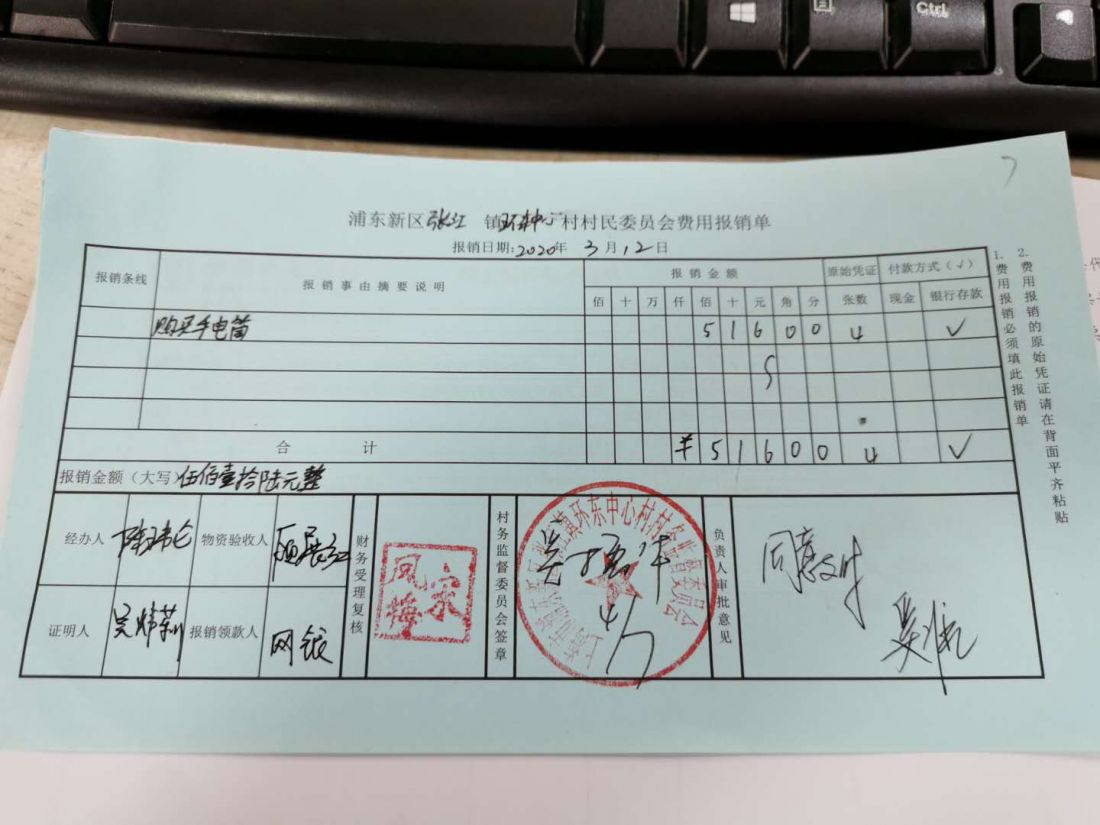 Ctrl
7
浦东新区张江镇环东中心村村民委员会费用报销单
报销日期:2020年3月12日
报销条线 报销事由摘要说明 报销金额 原始凭证 付款方式(√)
佰 十 万 仟 佰 十 元 角 分 张数 现金 银行存款
购买手电筒 5 1 6 0 0 4 √
合计 ¥ 5 1 6 0 0 4 √
报销金额(大写)伍佰壹拾陆元整
经办人 物资验收人
证明人 吴炜莉 报销领款人 网银
财务受理复核
宋凤梅
村务监督委员会签章
上海市浦东新区张江镇环东中心村村务监督委员会
4/7
负责人审批意见
同意支付
1.费用报销必须填此报销单
2.费用报销的原始凭证请在背面平齐粘贴